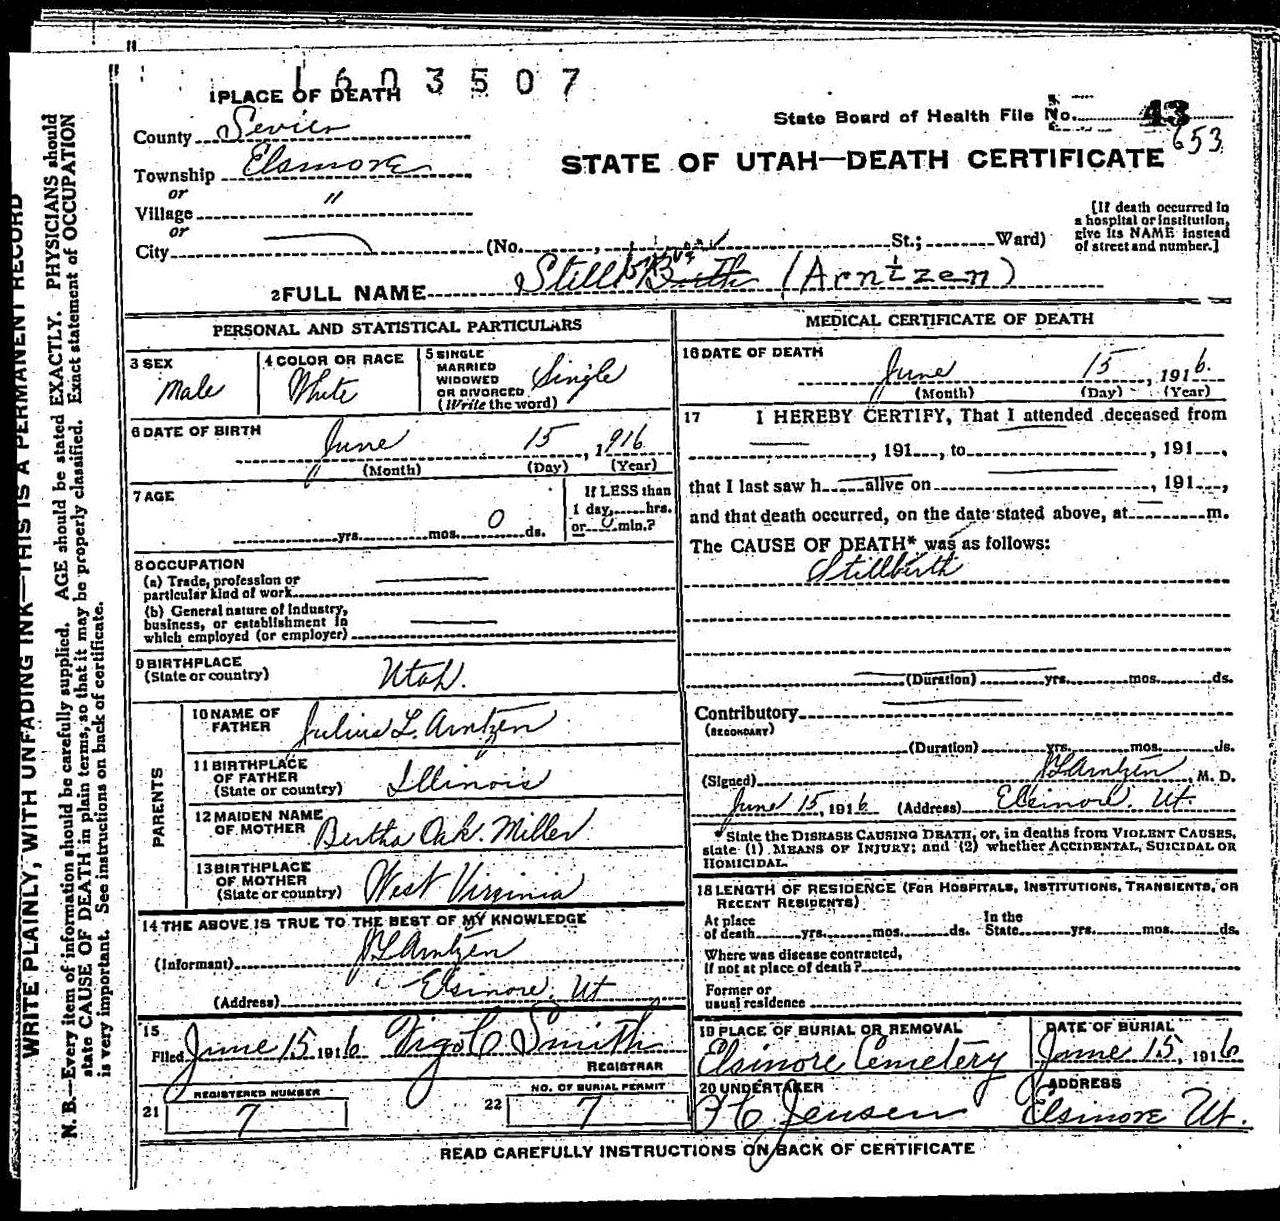 1603507
1 PLACE OF DEATH
State Board of Health File No. 43
653
County Sevier
STATE OF UTAH—DEATH CERTIFICATE
Township Elsinore
or
Village "
or
City (No. St.; Ward)
[If death occurred in
a hospital or institution,
give its NAME instead
of street and number.]
2 FULL NAME Still Birth (Arntzen)
PERSONAL AND STATISTICAL PARTICULARS
3 SEX
Male
4 COLOR OR RACE
White
5 SINGLE
MARRIED
WIDOWED
OR DIVORCED
(Write the word)
Single
6 DATE OF BIRTH
June 15, 1916
(Month) (Day) (Year)
7 AGE
yrs. mos. 0 ds.
If LESS than
1 day, hrs.
or 0 min.?
8 OCCUPATION
(a) Trade, profession or
particular kind of work
(b) General nature of industry,
business, or establishment in
which employed (or employer)
9 BIRTHPLACE
(State or country)
Utah.
PARENTS
10 NAME OF
FATHER
Julius L. Arntzen
11 BIRTHPLACE
OF FATHER
(State or country)
Illinois
12 MAIDEN NAME
OF MOTHER
Bertha Oak. Miller.
13 BIRTHPLACE
OF MOTHER
(State or country)
West Virginia
14 THE ABOVE IS TRUE TO THE BEST OF MY KNOWLEDGE
(Informant) JL Arntzen
(Address) Elsinore. Ut
15
Filed June 15 1916 Vigo C Smith
REGISTRAR
21
REGISTERED NUMBER
7
22
NO. OF BURIAL PERMIT
7
MEDICAL CERTIFICATE OF DEATH
16 DATE OF DEATH
June 15, 1916.
(Month) (Day) (Year)
17 I HEREBY CERTIFY, That I attended deceased from
, 191 , to , 191 ,
that I last saw h alive on , 191 ,
and that death occurred, on the date stated above, at m.
The CAUSE OF DEATH* was as follows:
Stillbirth
(Duration) yrs. mos. ds.
Contributory
(SECONDARY)
(Duration) yrs. mos. ds.
(Signed) JL Arntzen, M. D.
June 15, 1916 (Address) Elsinore. Ut.
*State the DISEASE CAUSING DEATH, or, in deaths from VIOLENT CAUSES,
state (1) MEANS OF INJURY; and (2) whether ACCIDENTAL, SUICIDAL OR
HOMICIDAL.
18 LENGTH OF RESIDENCE (FOR HOSPITALS, INSTITUTIONS, TRANSIENTS, OR
RECENT RESIDENTS)
At place
of death yrs. mos. ds.
In the
State yrs. mos. ds.
Where was disease contracted,
If not at place of death?
Former or
usual residence
19 PLACE OF BURIAL OR REMOVAL
Elsinore Cemetery
DATE OF BURIAL
June 15, 1916
20 UNDERTAKER
F C Jensen
ADDRESS
Elsinore Ut.
READ CAREFULLY INSTRUCTIONS ON BACK OF CERTIFICATE
WRITE PLAINLY, WITH UNFADING INK—THIS IS A PERMANENT RECORD
N. B.—Every item of information should be carefully supplied. AGE should be stated EXACTLY. PHYSICIANS should
state CAUSE OF DEATH in plain terms, so that it may be properly classified. Exact statement of OCCUPATION
is very important. See instructions on back of certificate.